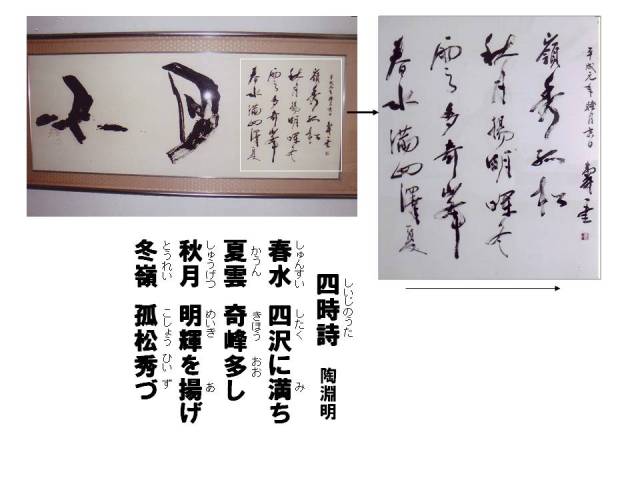 春水満四澤夏
雲多奇峯
秋月揚明暉冬
嶺秀孤松
平成元年
四時詩 陶淵明
しいじのうた
春水 四沢に満ち
しゅんすい したく み
夏雲 奇峰多し
かうん きほう おお
秋月 明輝を揚げ
しゅうげつ めいき あ
冬嶺 孤松秀づ
とうれい こしょう ひい ず